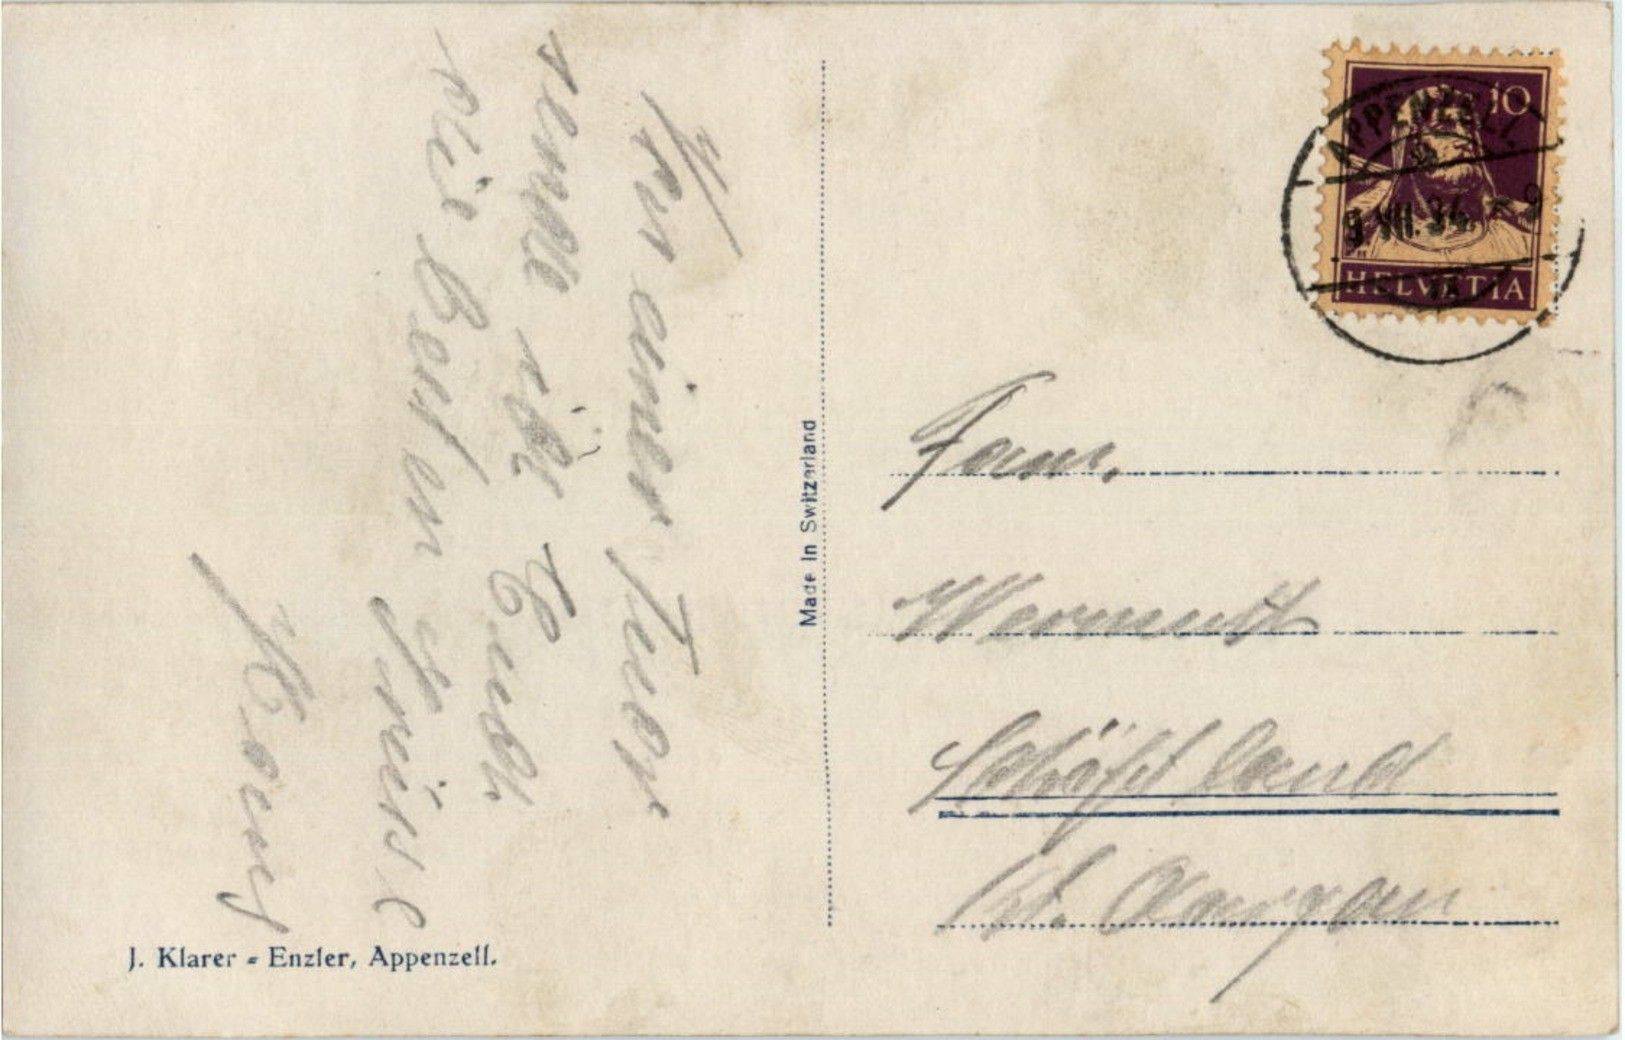 Von einer Tour
sende ich Euch
die besten Grüsse
Made in Switzerland
J. Klarer - Enzler, Appenzell.
10
HELVETIA
APPENZELL
9.VII.34. - 9
Fam.
Wermuth
Schöftland
Kt. Aargau